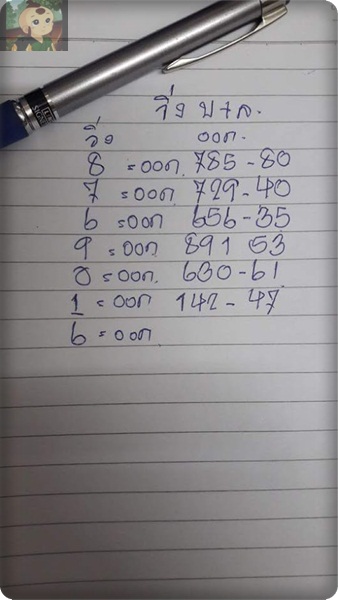 วิ่ง บาล.
วิ่ง ออก.
8 =ออก 785-80
7 =ออก 729-40
6 =ออก 656-35
9 =ออก 891 53
0 =ออก. 630-61
1 =ออก 142-47
6 =ออก